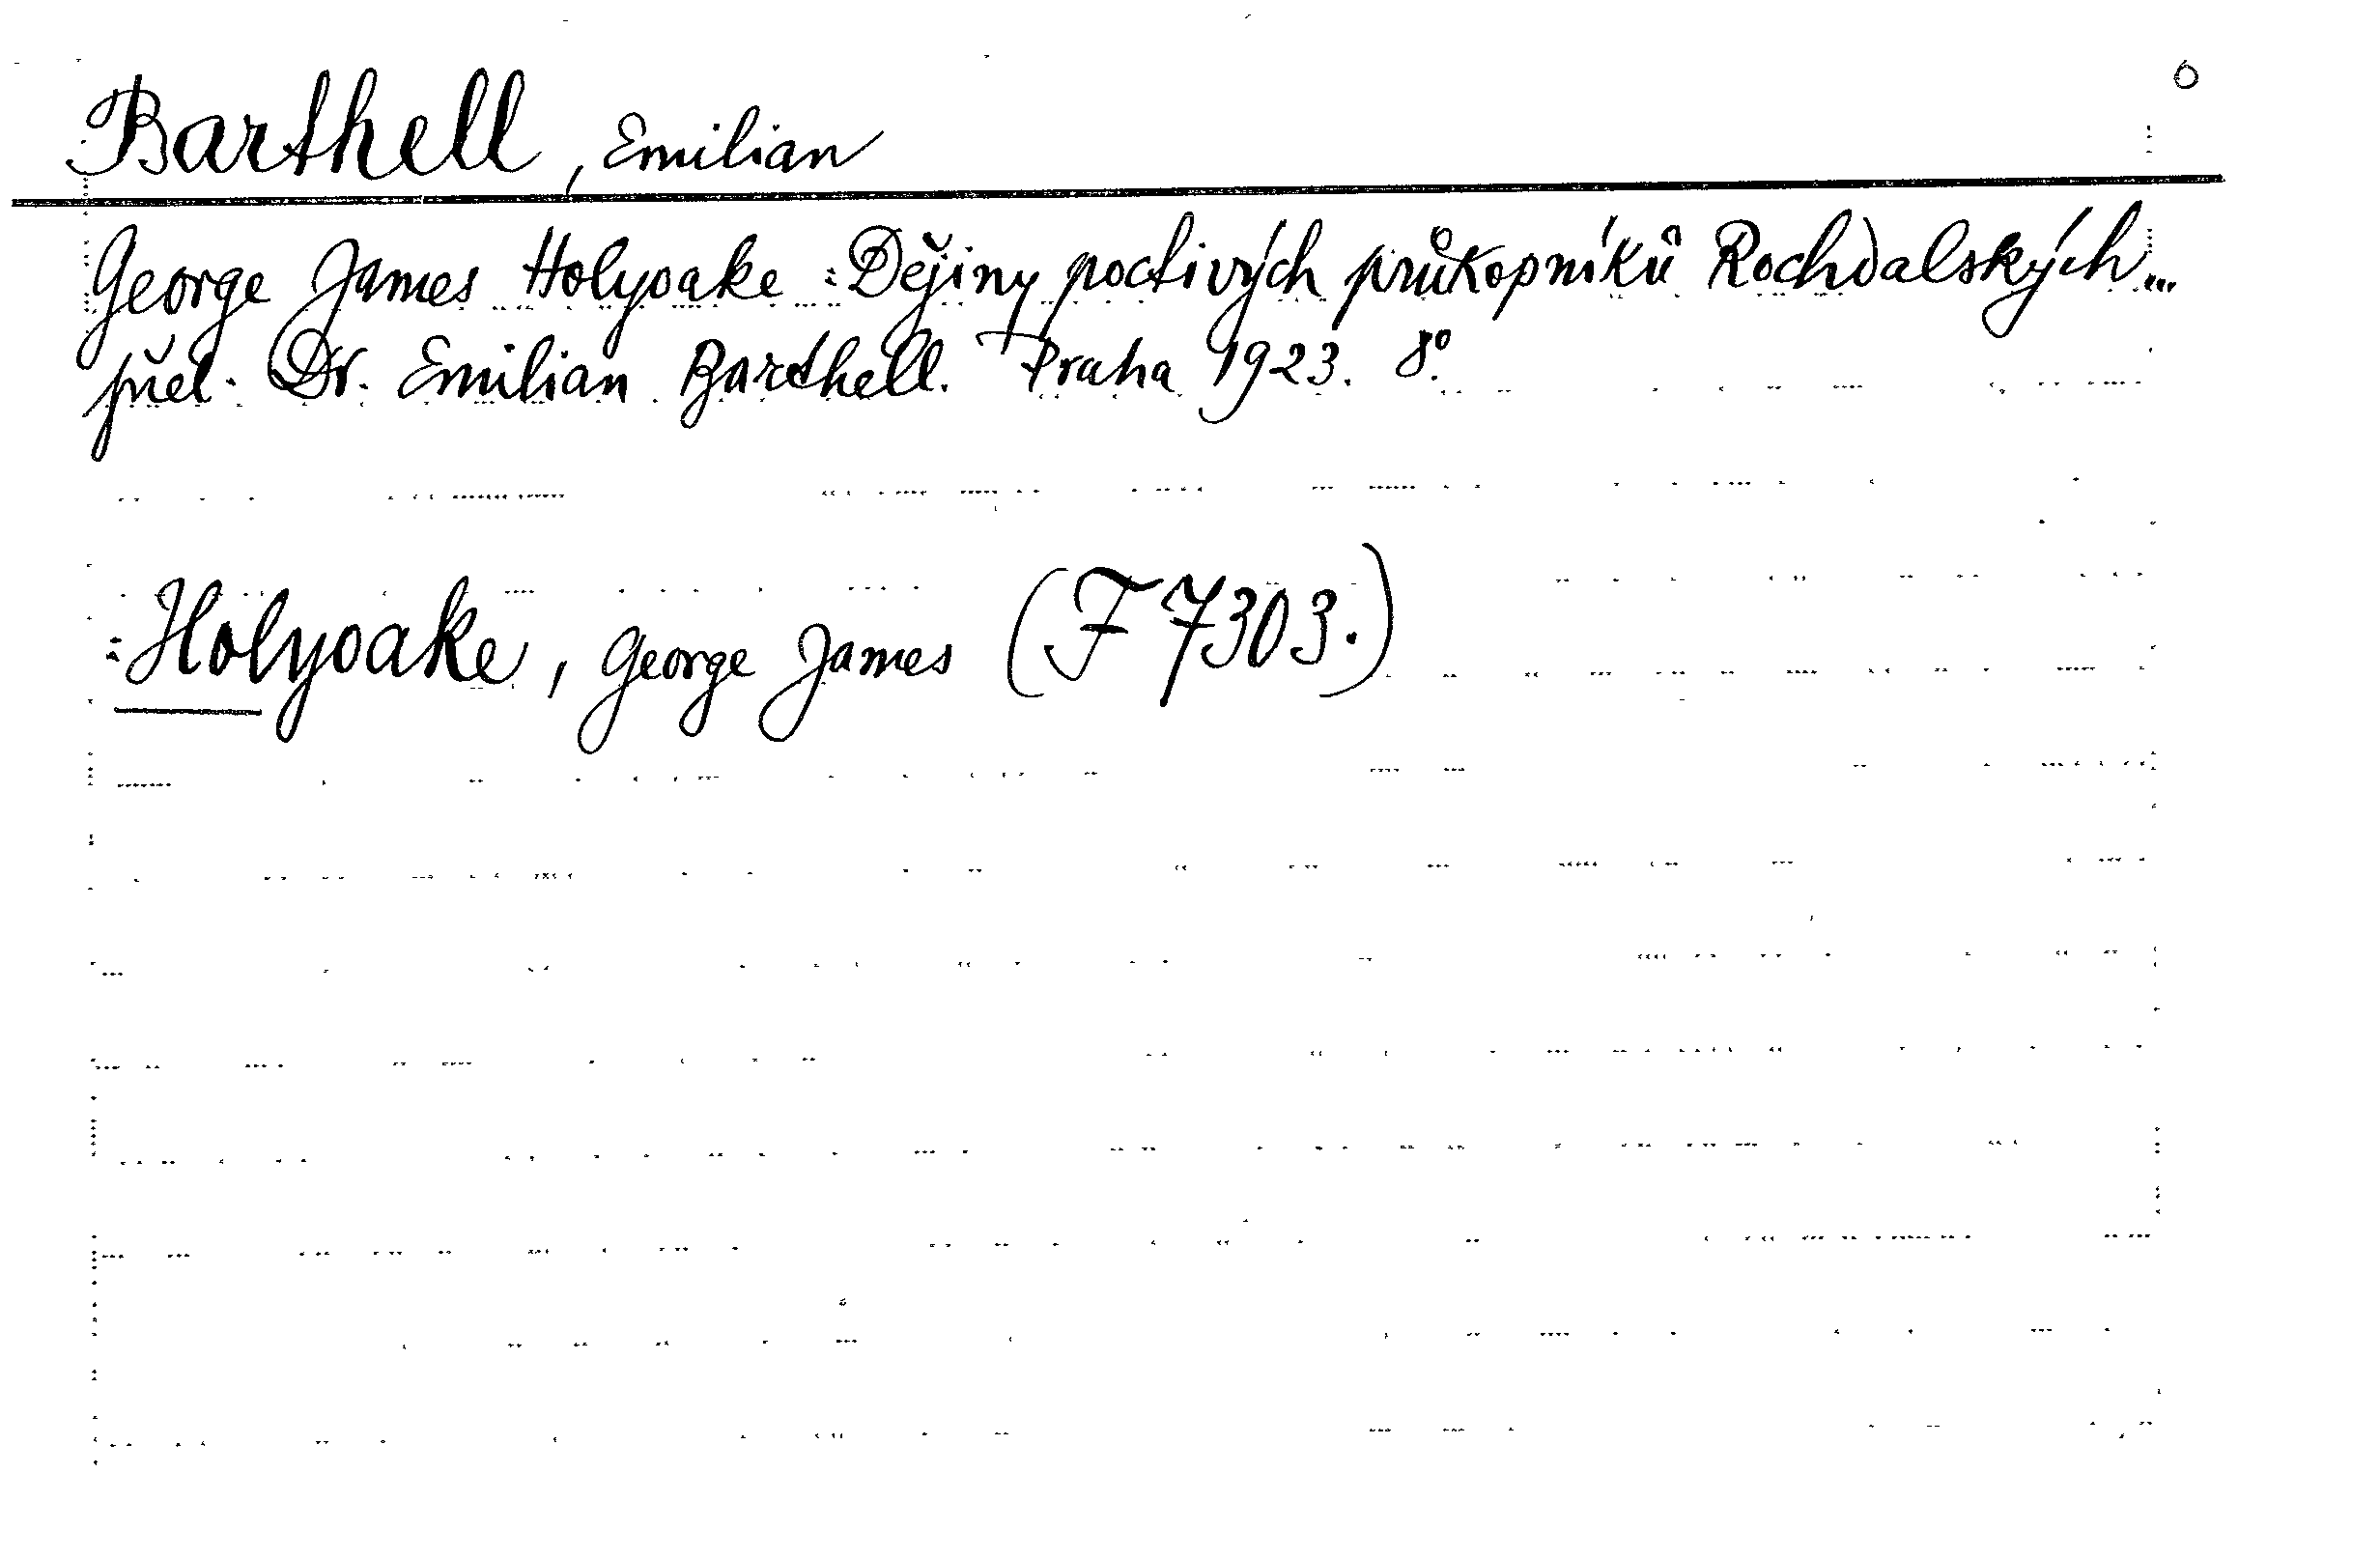 Barthell, Emilian
George James Holyoake: Dějiny poctivých průkopníků Rochdalských...
přel. Dr. Emilian Barthell. Praha 1923. 8°.
:Holyoake, George James (F 7303.)